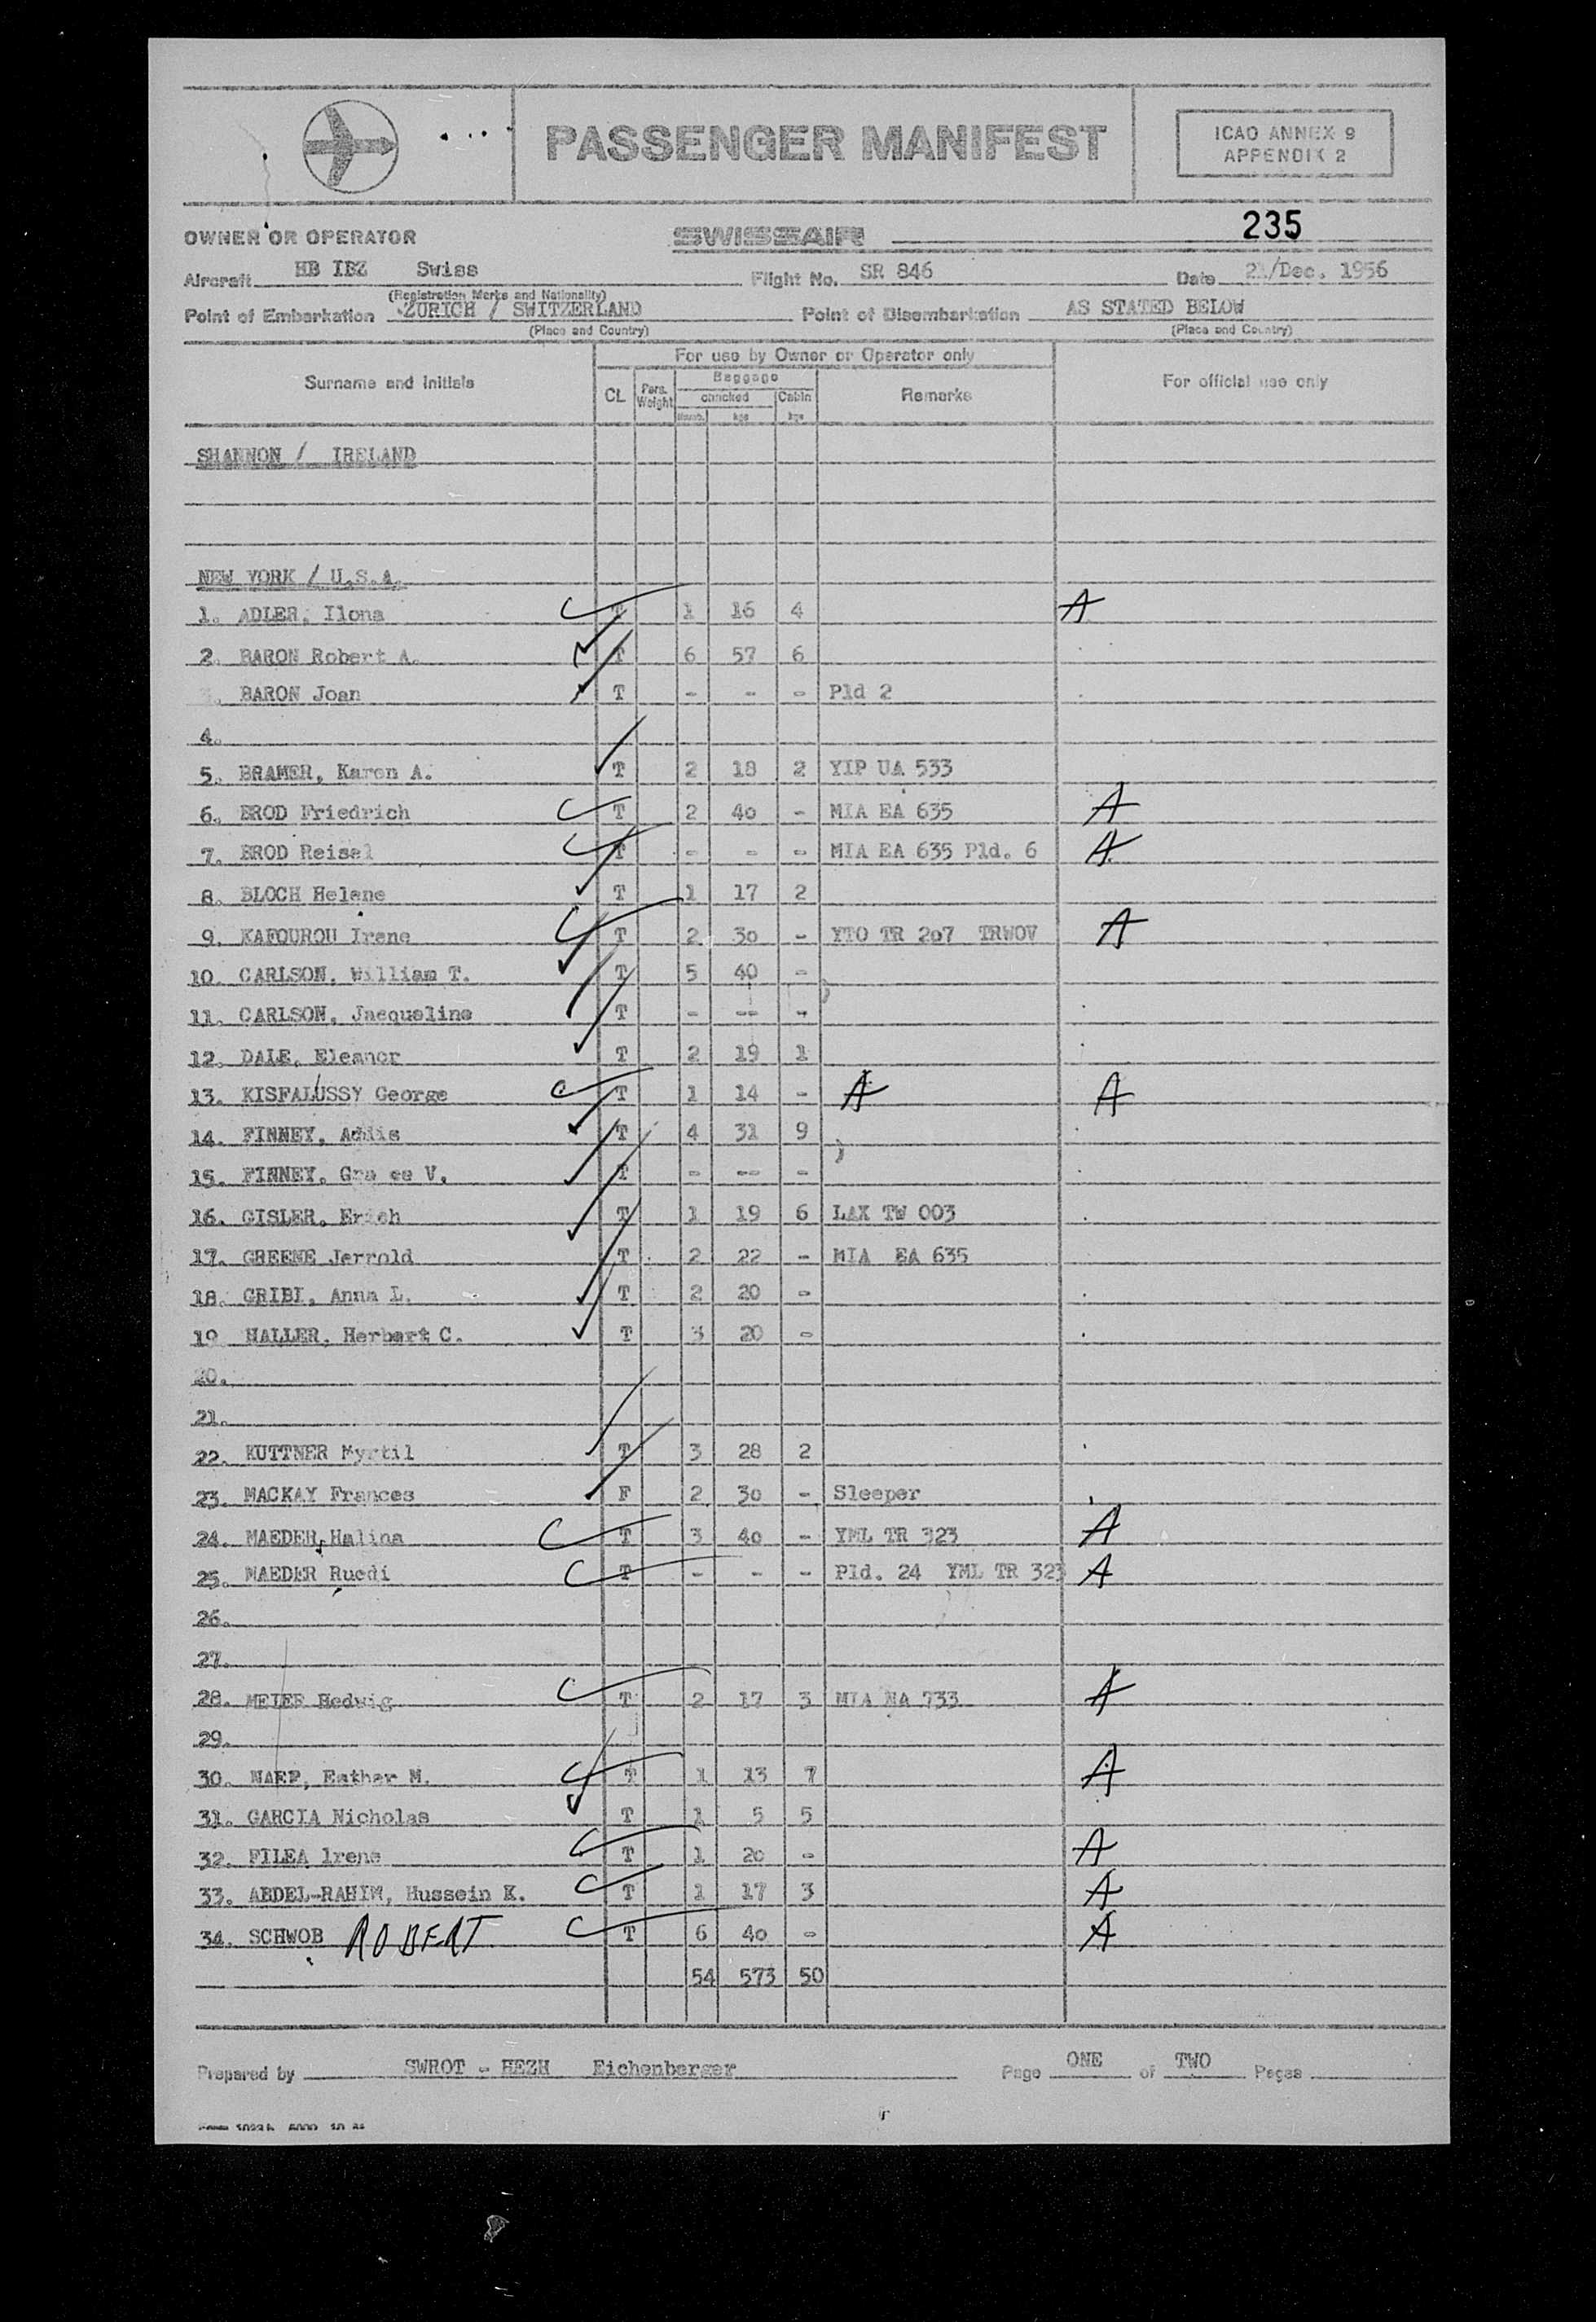 PASSENGER MANIFEST
ICAO ANNEX 9
APPENDIX 2
235
OWNER OR OPERATOR SWISSAIR
Aircraft HB IBZ Swiss Flight No. SR 846 Date 21/Dec. 1956
(Registration Marks and Nationality)
Point of Embarkation ZURICH / SWITZERLAND Point of Disembarkation AS STATED BELOW
(Place and Country) (Place and Country)
For use by Owner or Operator only
Surname and Initials CL Pers. Weight Baggage checked Cabin Remarks For official use only
Numb. kgs kgs
SHANNON / IRELAND
NEW YORK / U.S.A.
1. ADLER, Ilona T 1 16 4 A
2. BARON Robert A. T 6 57 6
3. BARON Joan T - - - Pld 2
4.
5. BRAMER, Karen A. T 2 18 2 YIP UA 533
6. BROD Friedrich T 2 40 - MIA EA 635 A
7. BROD Reisel T - - - MIA EA 635 Pld. 6 A
8. BLOCH Helene T 1 17 2
9. KAFOUROU Irene T 2 30 - YTO TR 207 TRWOV A
10. CARLSON, William T. T 5 40 - )
11. CARLSON, Jacqueline T - -- -
12. DALE, Eleanor T 2 19 1
13. KISFALUSSY George T 1 14 - A A
14. FINNEY, Addie T 4 31 9 )
15. FINNEY, Gra ce V. T - -- -
16. GISLER, Erich T 1 19 6 LAX TW 003
17. GREENE Jerrold T 2 22 - MIA EA 635
18. GRIBI, Anna L. T 2 20 -
19 HALLER, Herbert C. T 3 20 -
20.
21.
22. KUTTNER Myrtil T 3 28 2
23. MACKAY Frances F 2 30 - Sleeper
24. MAEDER, Halina T 3 40 - YML TR 323 A
25. MAEDER Ruedi T - - - Pld. 24 YML TR 323 A
26.
27.
28. MEIER Hedwig T 2 17 3 MIA NA 733 A
29.
30. NAEF, Esther M. T 1 13 7 A
31. GARCIA Nicholas T 1 5 5
32. FILEA Irene T 1 20 - A
33. ABDEL-RAHIM, Hussein K. T 1 17 3 A
34. SCHWOB ROBERT T 6 40 - A
54 573 50
Prepared by SWROT - HEZH Eichenberger Page ONE of TWO Pages